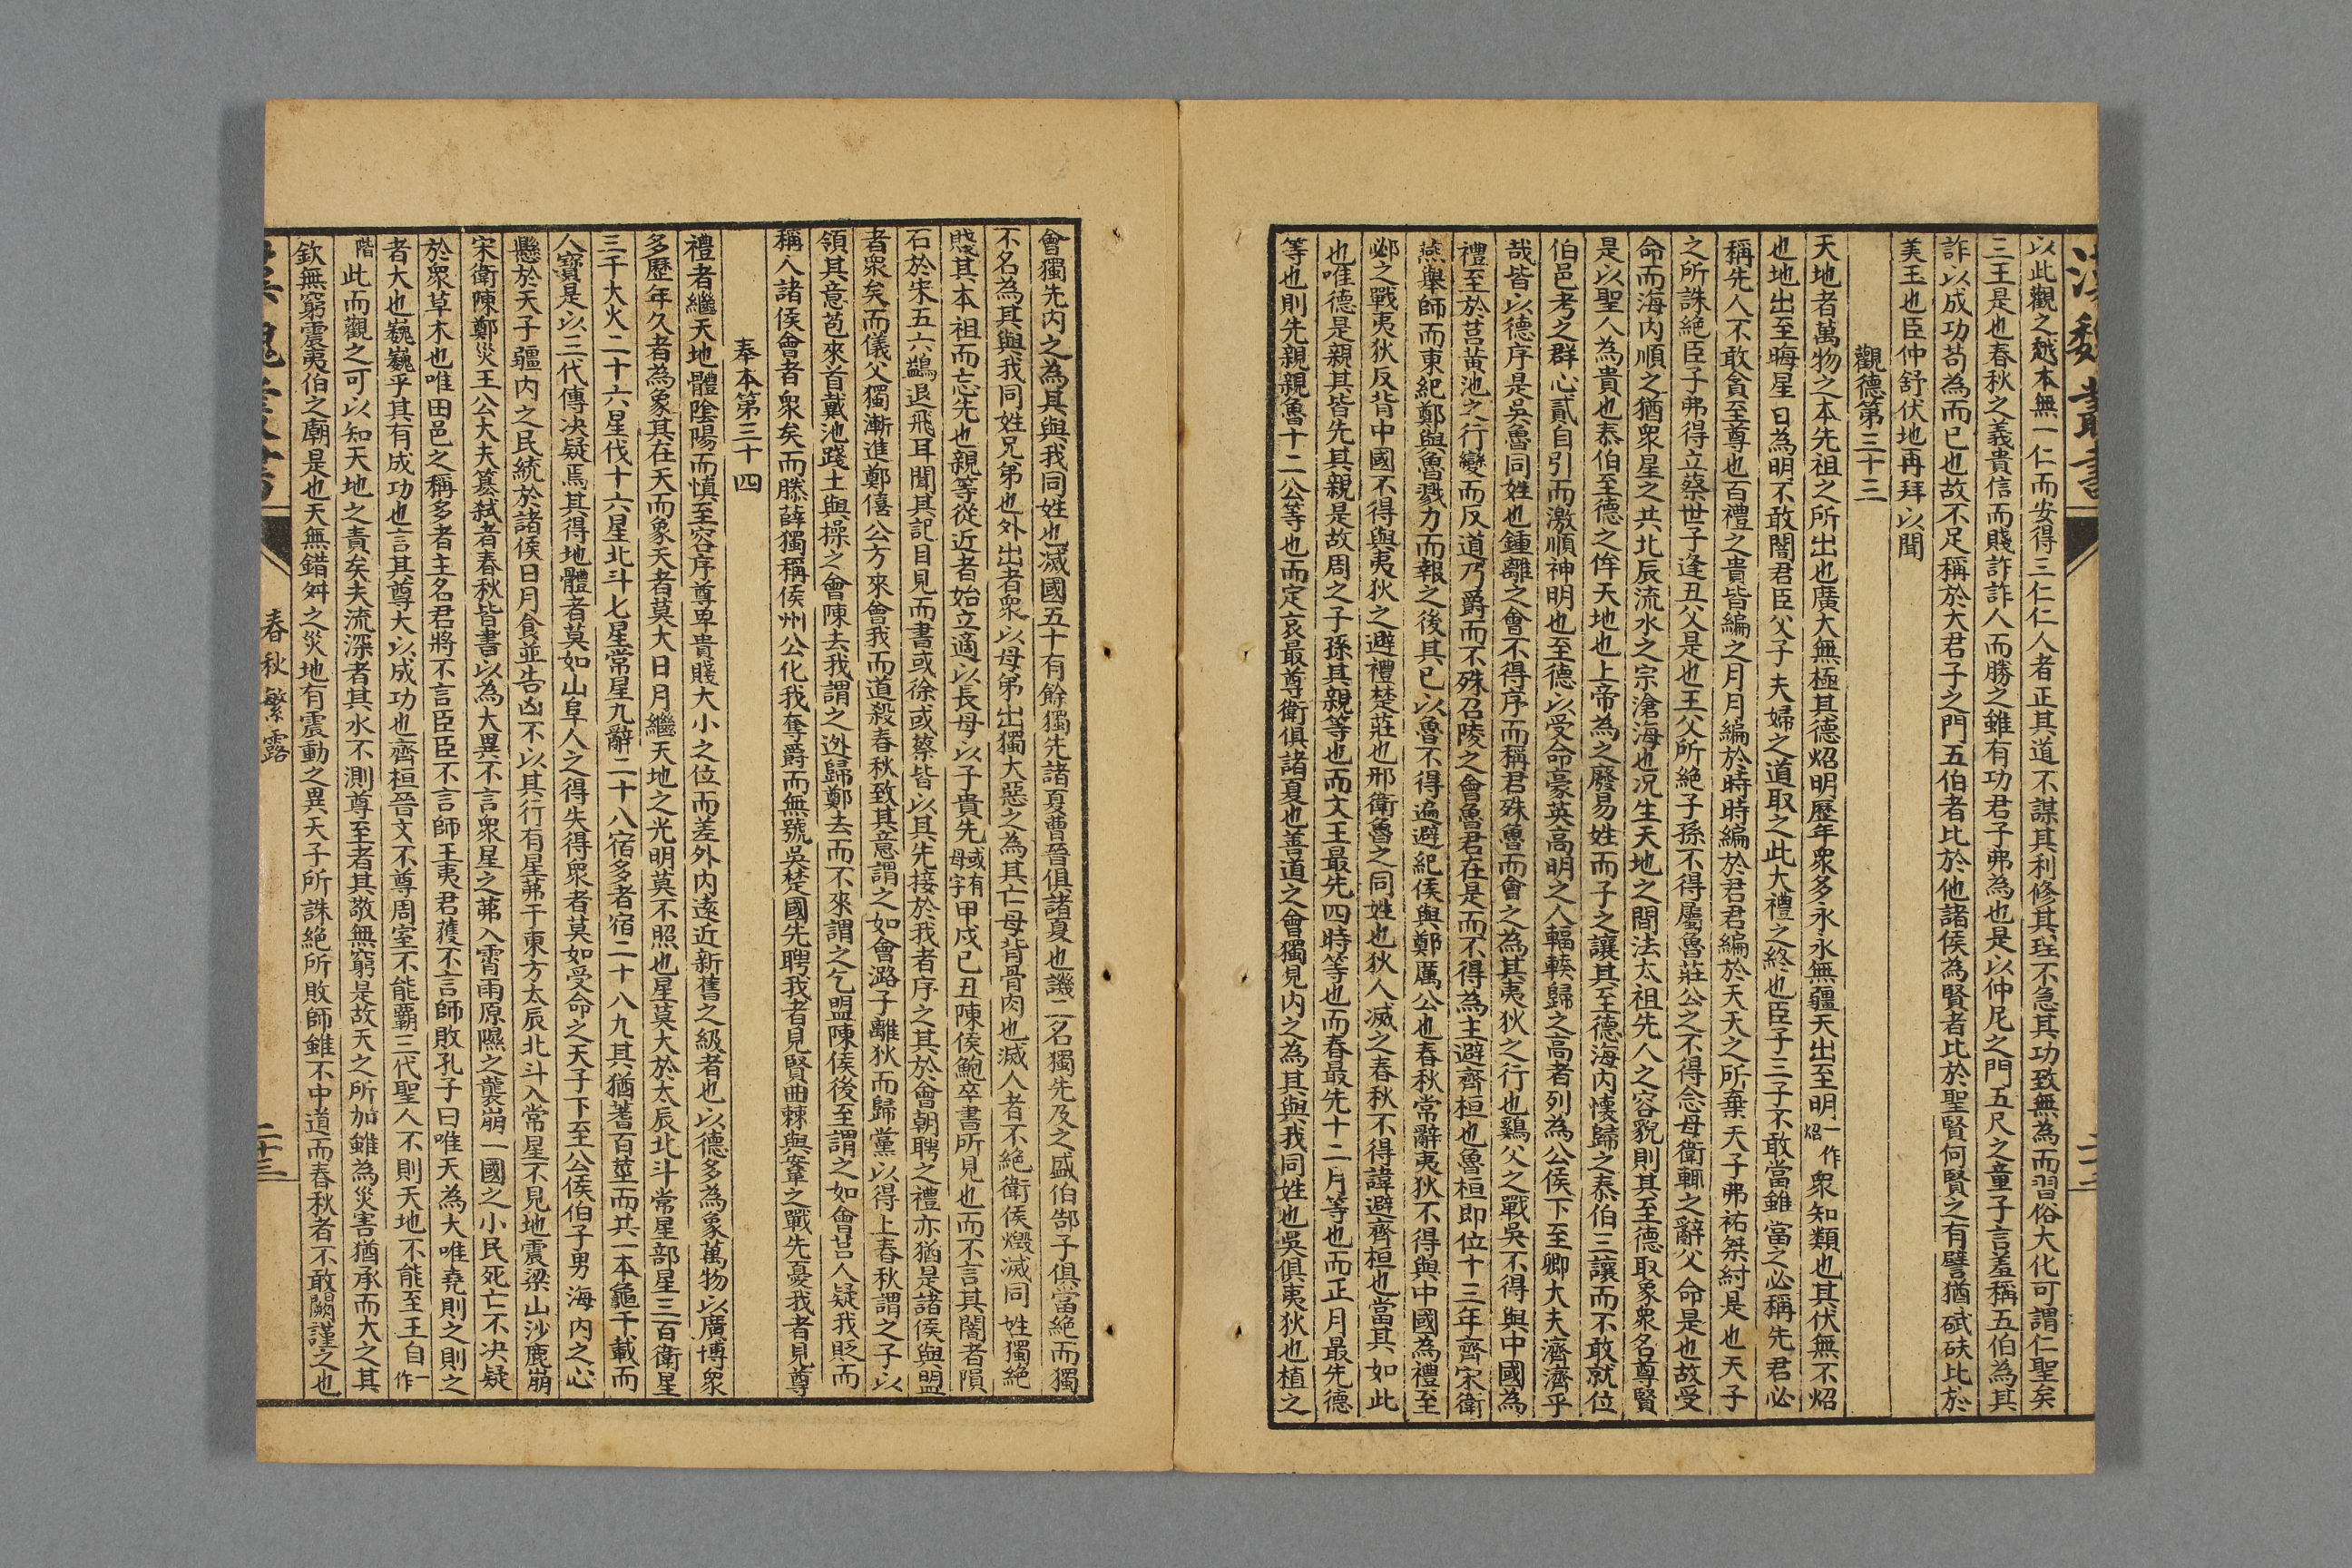 漢魏叢書
二十二
以此觀之越本無一仁而安得三仁仁人者正其道不謀其利修其理不急其功致無為而習俗大化可謂仁聖矣
三王是也春秋之義貴信而賤詐詐人而勝之雖有功君子弗為也是以仲尼之門五尺之童子言羞稱五伯為其
詐以成功苟為而已也故不足稱於大君子之門五伯者比於他諸侯為賢者比於聖賢何賢之有譬猶碔砆比於
美玉也臣仲舒伏地再拜以聞
觀德第三十三
天地者萬物之本先祖之所出也廣大無極其德炤明歷年衆多永永無疆天出至明一作炤衆知類也其伏無不炤
也地出至晦星日為明不敢闇君臣父子夫婦之道取之此大禮之終也臣子三子不敢當雖當之必稱先君必
稱先人不敢貪至尊也百禮之貴皆編之月月編於時時編於君君編於天天之所棄天子弗祐桀紂是也天子
之所誅絕臣子弗得立蔡世子逢丑父是也王父所絕子孫不得屬魯莊公之不得念母衛輒之辭父命是也故受
命而海內順之猶衆星之共北辰流水之宗滄海也況生天地之間法太祖先人之容貌則其至德取象衆名尊賢
是以聖人為貴也泰伯至德之侔天地也上帝為之廢易姓而子之讓其至德海內懷歸之泰伯三讓而不敢就位
伯邑考之群心貳自引而激順神明也至德以受命豪英高明之人輻輳歸之高者列為公侯下至卿大夫濟濟乎
哉皆以德序是吳魯同姓也鍾離之會不得序而稱君殊魯而會之為其夷狄之行也雞父之戰吳不得與中國為
禮至於莒黃池之行變而反道乃爵而不殊召陵之會魯君在是而不得為主避齊桓也魯桓即位十三年齊宋衛
燕舉師而東紀鄭與魯戮力而報之後其已以魯不得遍避紀侯與鄭厲公也春秋常辭夷狄不得與中國為禮至
邲之戰夷狄反背中國不得與夷狄之避禮楚莊也邢衛魯之同姓也狄人滅之春秋不得諱避齊桓也當其如此
也唯德是親其皆先其親是故周之子孫其親等也而文王最先四時等也而春最先十二月等也而正月最先德
等也則先親親魯十二公等也而定哀最尊衛俱諸夏也善道之會獨見內之為其與我同姓也吳俱夷狄也植之
會獨先內之為其與我同姓也滅國五十有餘獨先諸夏曹晉俱諸夏也譏二名獨先及之盛伯郜子俱當絕而獨
不名為其與我同姓兄弟也外出者衆以母弟出獨大惡之為其亡母背骨肉也滅人者不絕衛侯燬滅同姓獨絕
賤其本祖而忘先也親等從近者始立適以長母以子貴先或有母字甲戍己丑陳侯鮑卒書所見也而不言其闇者隕
石於宋五六鷁退飛耳聞其記目見而書或徐或蔡皆以其先接於我者序之其於會朝聘之禮亦猶是諸侯與盟
者衆矣而儀父獨漸進鄭僖公方來會我而道殺春秋致其意謂之如會潞子離狄而歸黨以得上春秋謂之子以
領其意苞來首戴池踐土與操之會陳去我謂之迯歸鄭去而不來謂之乞盟陳侯後至謂之如會莒人疑我貶而
稱人諸侯會者衆矣而滕薛獨稱侯州公化我奪爵而無號吳楚國先聘我者見賢曲棘與鞌鞌之戰先憂我者見尊
奉本第三十四
禮者繼天地體陰陽而慎至容序尊卑貴賤大小之位而差外內遠近新舊之級者也以德多為象萬物以廣博衆
多歷年久者為象其在天而象天者莫大日月繼天地之光明莫不照也星莫大於太辰北斗常星部星三百衛星
三千大火二十六星伐十六星北斗七星常星九辭二十八宿多者宿二十八九其猶蓍百莖而共一本龜千載而
人寶是以三代傳決疑焉其得地體者莫如山阜人之得失得衆者莫如受命之天子下至公侯伯子男海內之心
懸於天子疆內之民統於諸侯日月食並告凶不以其行有星茀于東方太辰北斗入常星不見地震梁山沙鹿崩
宋衛陳鄭災王公大夫篡弒者春秋皆書以為大異不言衆星之茀入霄雨原隰之襲崩一國之小民死亡不決疑
於衆草木也唯田邑之稱多者主名君將不言臣臣不言師王夷君獲不言師敗孔子曰唯天為大唯堯則之則之
者大也巍巍乎其有成功也言其尊大以成功也齊桓晉文不尊周室不能霸三代聖人不則天地不能至王自一作
階此而觀之可以知天地之責矣夫流深者其水不測尊至者其敬無窮是故天之所加雖為災害猶承而大之其
欽無窮震夷伯之廟是也天無錯舛之災地有震動之異天子所誅絕所敗師雖不中道而春秋者不敢闕謹之也
漢魏叢書
春秋繁露
二十三